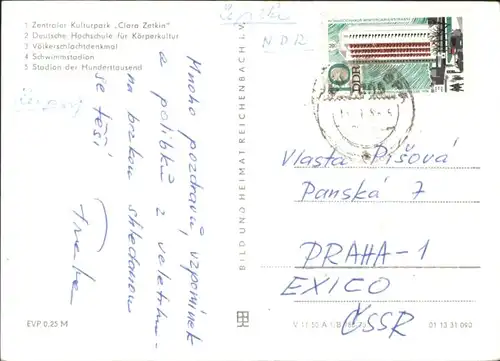 1 Zentraler Kulturpark „Clara Zetkin"
2 Deutsche Hochschule für Körperkultur
3 Völkerschlachtdenkmal
4 Schwimmstadion
5 Stadion der Hunderttausend
Mnoho pozdravů, vzpomínek
a polibků z veletrhu
na brzkou shledanou
se těší
EVP 0,25 M
BILD UND HEIMAT REICHENBACH I. V.
NDR
10
DDR
Vlasta Píšová
Panská 7
PRAHA-1
EXICO
ČSSR
01 13 31 093